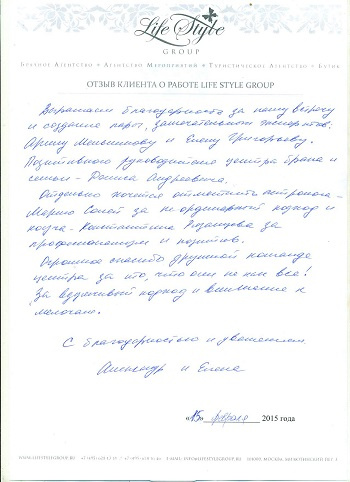 Life Style
GROUP
Брачное Агентство • Агентство Мероприятий • Туристическое Агентство • Бутик
ОТЗЫВ КЛИЕНТА О РАБОТЕ LIFE STYLE GROUP
Выражаем благодарность за нашу встречу
и создание пары, замечательным экспертам:
Арину Мельникову и Елену Григорьеву.
Позитивного руководителя центра брака и
семьи - Дениса Андреевича.
Отдельно хочется отметить астролога -
Марию за не ординарный подход и
коуча - Константина за
профессионализм и позитив.
Огромное спасибо дружной команде
центра за то, что они не как все!
За вдумчивый подход и внимание к
мелочам.
С благодарностью и уважением
Александр и Елена
«15» февраля 2015 года
WWW.LIFESTYLEGROUP.RU